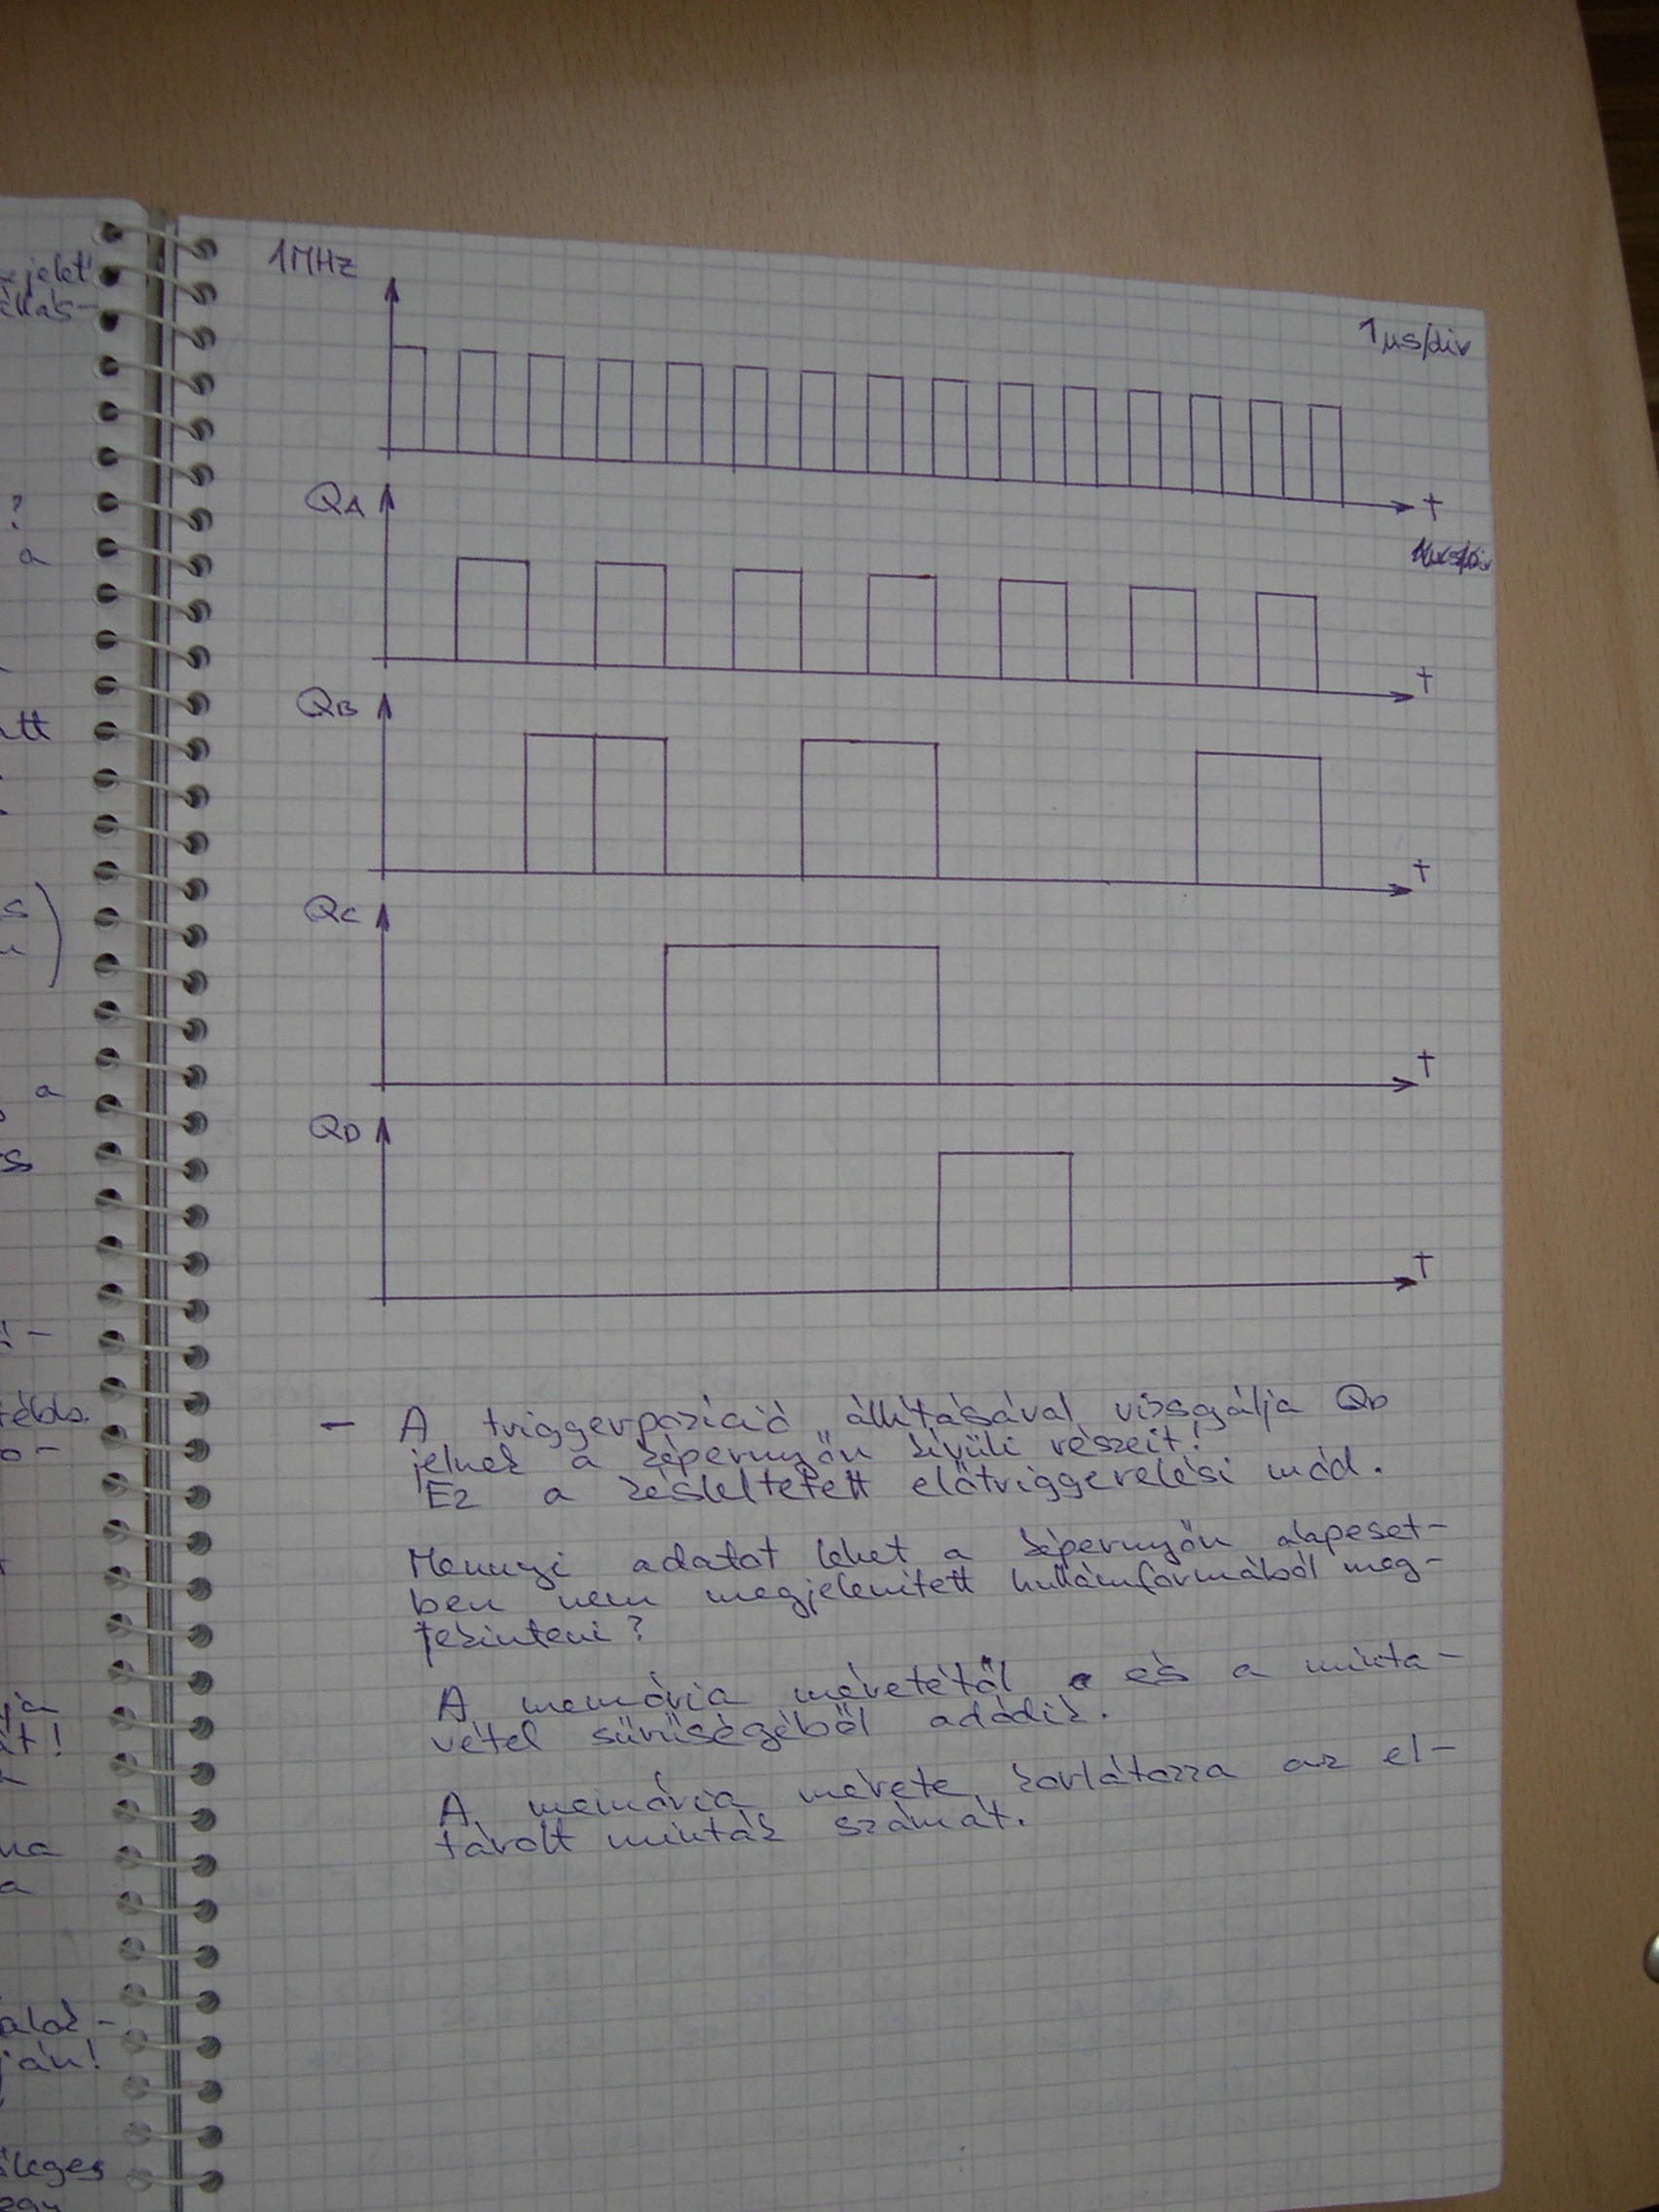 jelet
állás-
?
a
tt
s
a
s
a
ján!
1MHz
1µs/div
t
QA
t
QB
t
QC
t
QD
t
- A triggerpozíció állításával vizsgálja QD
jelnek a képernyőn kívüli részeit!
Ez a késleltetett előtriggerelési mód.
Mennyi adatot lehet a képernyőn alapeset-
ben nem megjelenített hullámformából meg-
tekinteni?
A memória méretétől és a minta-
vétel sűrűségéből adódik.
A memória mérete korlátozza az el-
tárolt minták számát.